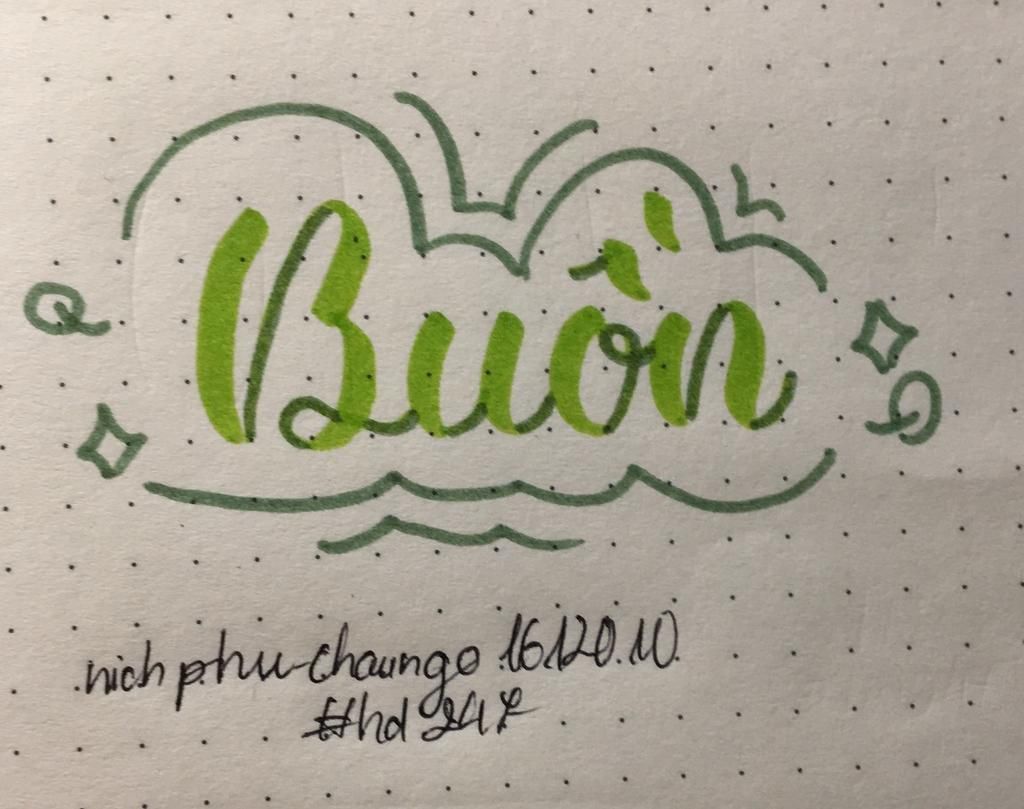 Buồn
nich phu-chaungo 16120.10
#hd 247